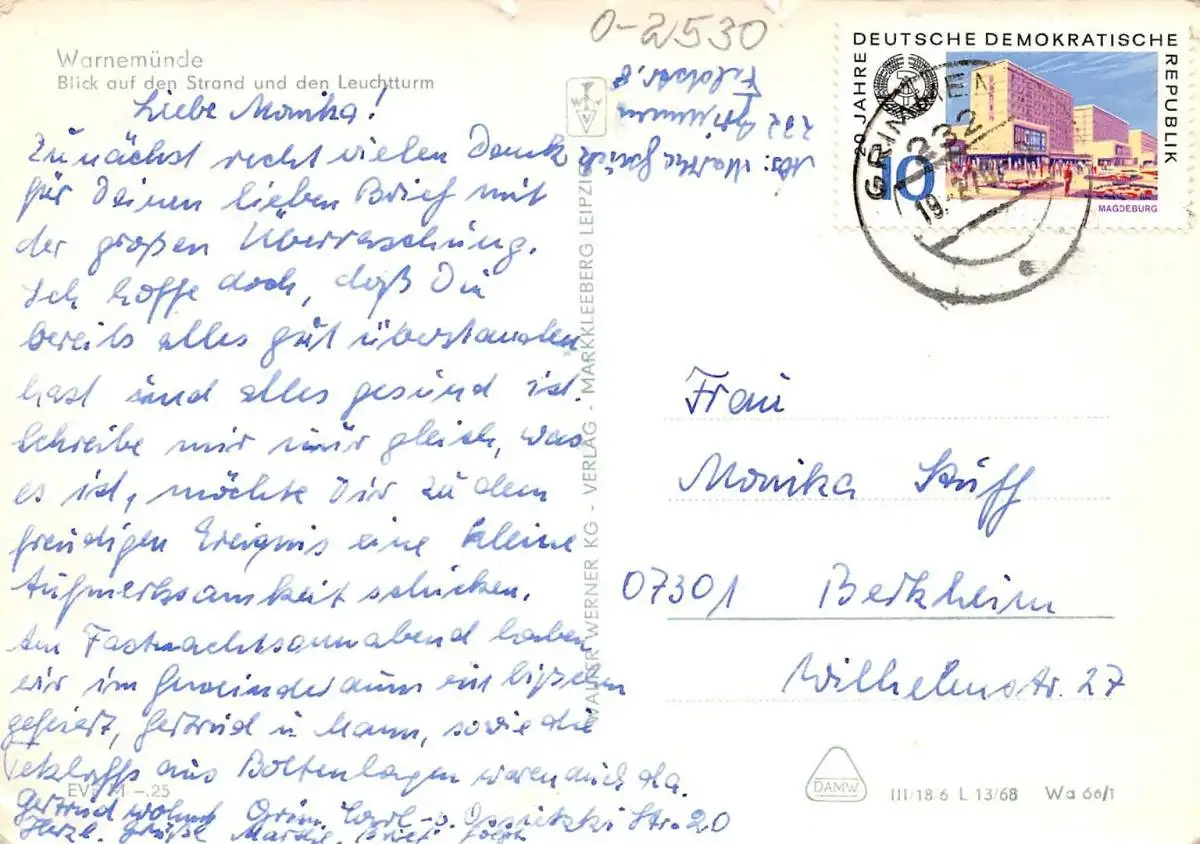 0-2530
Warnemünde
Blick auf den Strand und den Leuchtturm
Liebe Monika!
Zunächst recht vielen Dank
für Deinen lieben Brief mit
der großen Überraschung.
Ich hoffe doch, daß Du
bereits alles gut überstanden
hast und alles gesund ist.
Schreibe mir nur gleich, was
es ist, möchte Dir zu dem
freudigen Ereignis eine kleine
Aufmerksamkeit schicken.
Am Fastnachtsonnabend haben
wir im Gemeinderaum ein bißchen
gefeiert, Gertrud u. Mann, sowie die
aus Boltenhagen waren auch da.
EVP M -.25
Gertrud wohnt Grim. Carl-v. Ossietzki Str. 20
Herzl. Grüße
Abs: Martha
232 Grimmen
Feldstr. 8
WALTER WERNER KG - VERLAG - MARKKLEEBERG LEIPZIG
20 JAHRE DEUTSCHE DEMOKRATISCHE REPUBLIK
10
MAGDEBURG
GRIMMEN
232
Frau
Monika Stuff
07301 Berkheim
Wilhelmstr. 27
DAMW
III/18 6 L 13/68 Wa 66/1